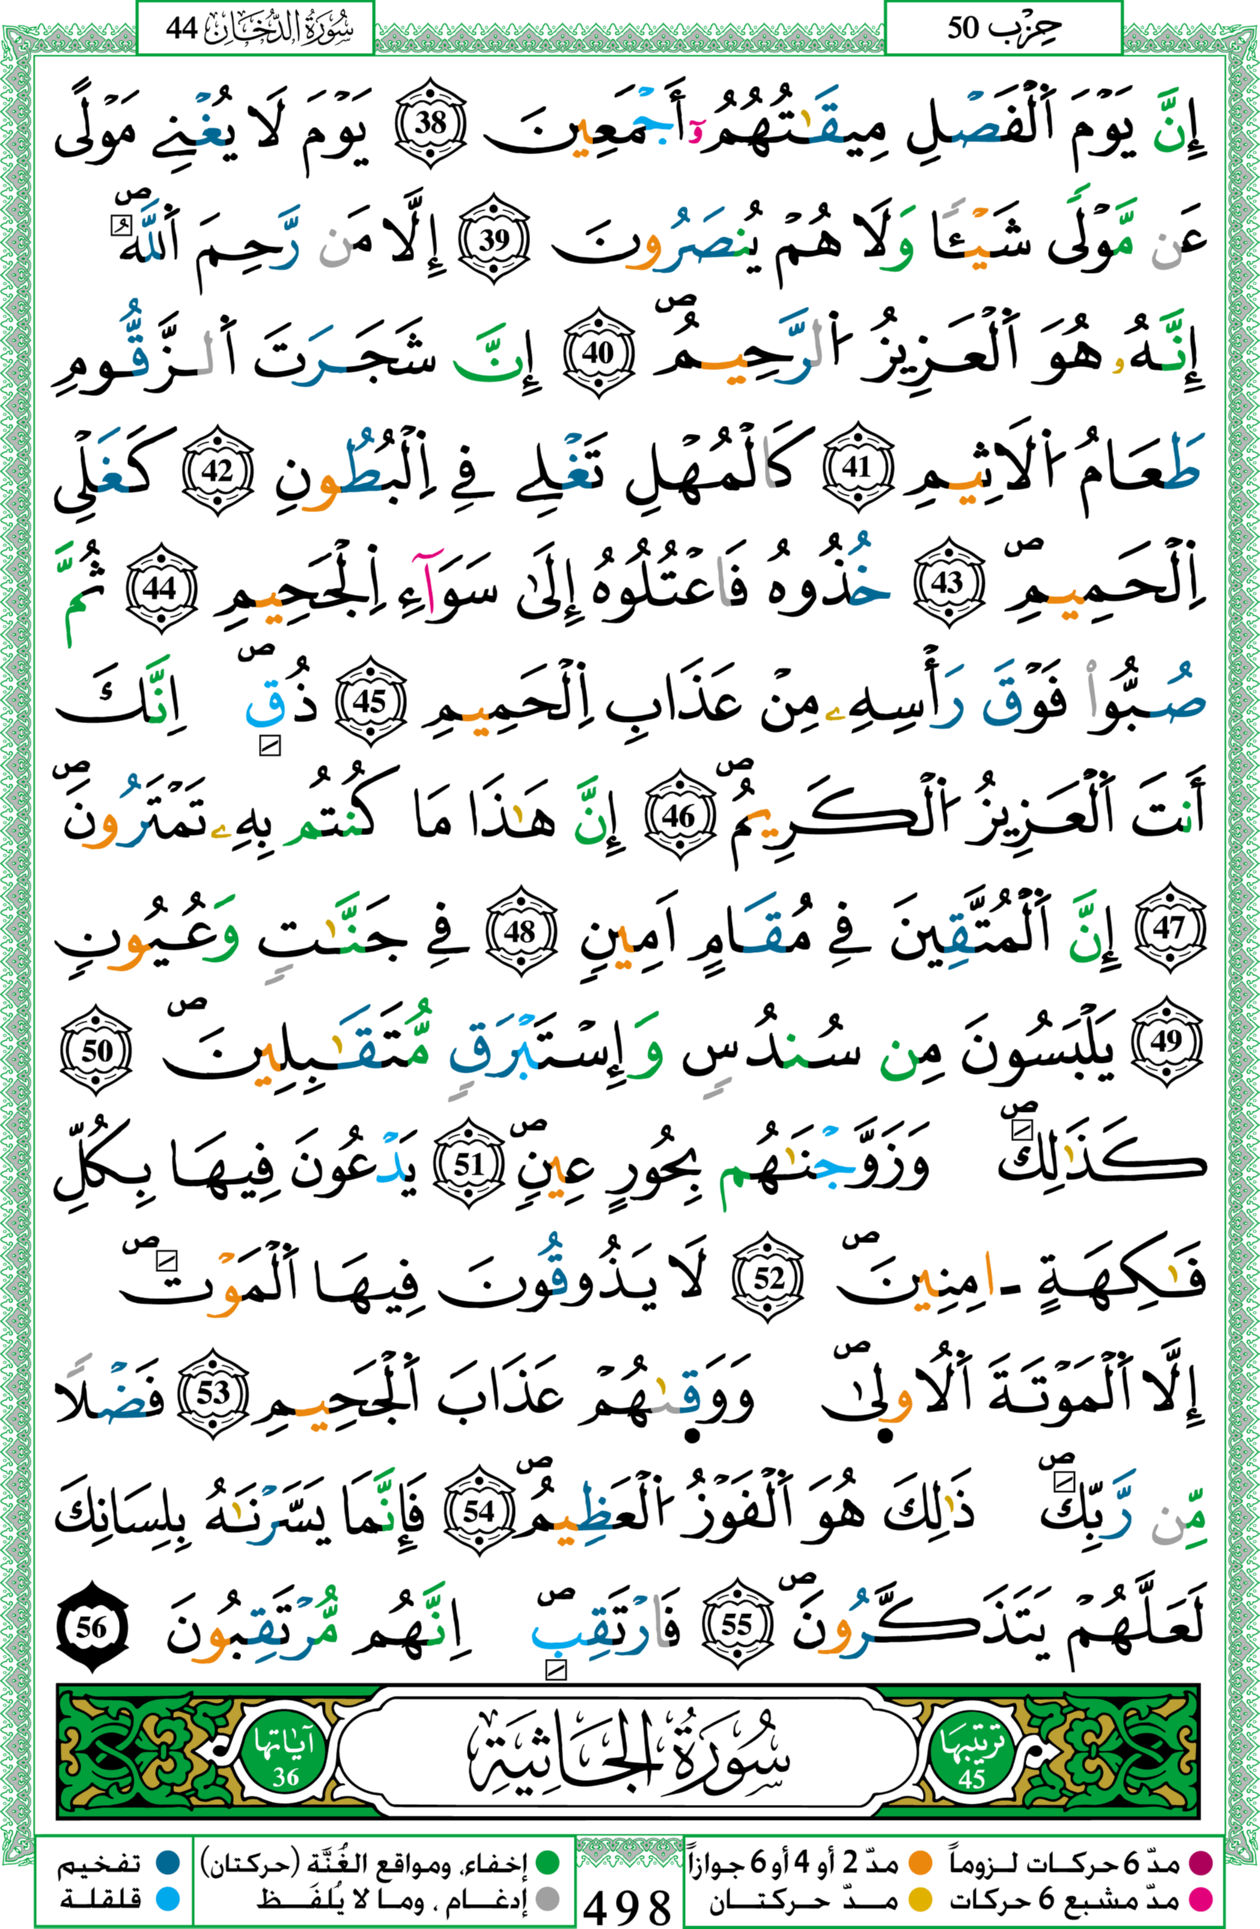 سُورَةُ الدُّخَانِ 44
حِزْب 50
إِنَّ يَوْمَ اَ۬لْفَصْلِ مِيقَٰتُهُمُۥٓ أَجْمَعِينَ 38 يَوْمَ لَا يُغْنِے مَوْلًى
عَن مَّوْلٗى شَيْـٔٗا وَلَا هُمْ يُنصَرُونَ 39 إِلَّا مَن رَّحِمَ اَ۬للَّهُ ص
إِنَّهُۥ هُوَ اَ۬لْعَزِيزُ اُ۬لرَّحِيمُ ص 40 إِنَّ شَجَرَتَ اَ۬لزَّقُّومِ
طَعَامُ اُ۬لَاثِيمِ 41 كَالْمُهْلِ تَغْلِے فِے اِ۬لْبُطُونِ 42 كَغَلْيِ
اِ۬لْحَمِيمِ ص 43 خُذُوهُ فَاعْتُلُوهُ إِلَىٰ سَوَآءِ اِ۬لْجَحِيمِ 44 ثُمَّ
صُبُّواْ فَوْقَ رَأْسِهِۦ مِنْ عَذَابِ اِ۬لْحَمِيمِ 45 ذُقِ ص اِنَّكَ
أَنتَ اَ۬لْعَزِيزُ اُ۬لْكَرِيمُ ص 46 إِنَّ هَٰذَا مَا كُنتُم بِهِۦ تَمْتَرُونَ ص
47 إِنَّ اَ۬لْمُتَّقِينَ فِے مُقَامٍ اَمِينٍ 48 فِے جَنَّٰتٖ وَعُيُونٍ
49 يَلْبَسُونَ مِن سُندُسٖ وَإِسْتَبْرَقٖ مُّتَقَٰبِلِينَ ص 50
كَذَٰلِكَ ص وَزَوَّجْنَٰهُم بِحُورٍ عِينٍ ص 51 يَدْعُونَ فِيهَا بِكُلِّ
فَٰكِهَةٍ ـ امِنِينَ ص 52 لَا يَذُوقُونَ فِيهَا اَ۬لْمَوْتَ ص
إِلَّا اَ۬لْمَوْتَةَ اَ۬لُاولَىٰ ص وَوَقَىٰهُمْ عَذَابَ اَ۬لْجَحِيمِ 53 فَضْلٗا
مِّن رَّبِّكَ ص ذَٰلِكَ هُوَ اَ۬لْفَوْزُ اُ۬لْعَظِيمُ ص 54 فَإِنَّمَا يَسَّرْنَٰهُ بِلِسَانِكَ
لَعَلَّهُمْ يَتَذَكَّرُونَ ص 55 فَارْتَقِبِ ص اِنَّهُم مُّرْتَقِبُونَ 56
ترتيبها 45 سُورَةُ الجَاثِيَةِ آياتها 36
مدّ 6 حركات لـزوماً مدّ 2 أو 4 أو 6 جوازاً إخفاء، ومواقع الغُنَّة (حركتان) تفخيم
مدّ مشبع 6 حركات مــدّ حـركتــان إدغـام ، ومـا لا يُلفَـظ قلقلة
498